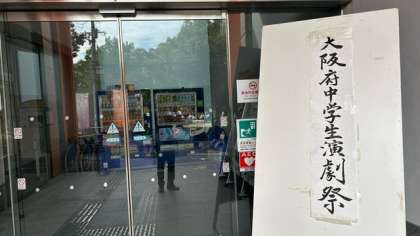 大阪府中学生演劇祭
AED